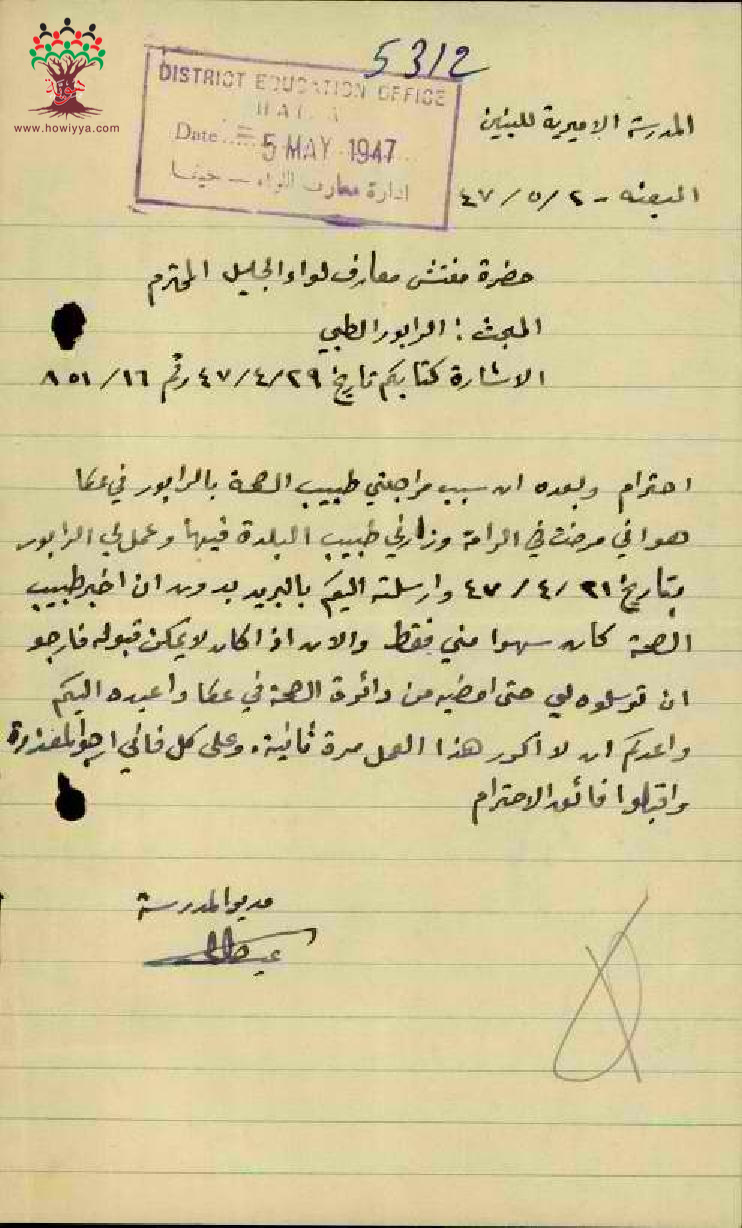 5312
هوية
www.howiyya.com
DISTRICT EDUCATION OFFICE
HAIFA
Date
5 MAY 1947
ادارة معارف اللواء — حيفا
المدرسة الاميرية للبنين
البعنه - ٢/٥/٤٧
حضرة مفتش معارف لواء الجليل المحترم
المبحث : الرابور الطبي
الاشارة كتابكم تاريخ ٢٩/٤/٤٧ رقم ١٦/٨٥١
احترام وبعده ان سبب مراجعتي طبيب الصحة بالرابور في عكا
هو اني مرضت في الرامة وزارني طبيب البلدة فيها وعمل لي الرابور
بتاريخ ٢١/٤/٤٧ وارسلته اليكم بالبريد بدون ان اخبر طبيب
الصحة كان سهوا مني فقط والان اذا كان لا يمكن قبوله فارجو
ان ترسلوه لي حتى امضيه من دائرة الصحة في عكا واعيده اليكم
واعدكم ان لا اكرر هذا العمل مرة ثانية. وعلى كل فاني ارجو المعذرة
واقبلوا فائق الاحترام
مدير المدرسة